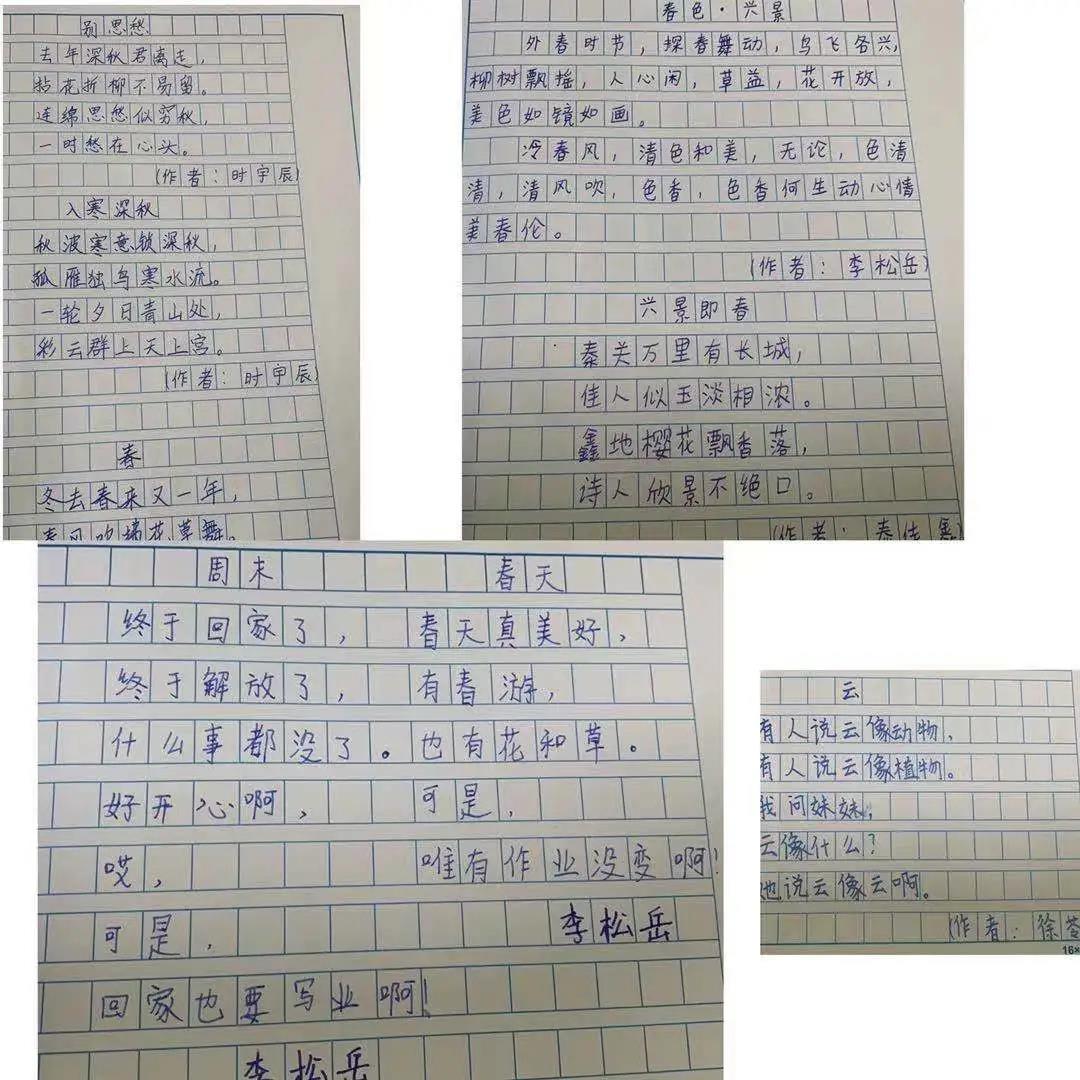 别思愁
去年深秋君离走，
拈花折柳不易留。
连绵思愁似穷秋，
一时愁在心头。
(作者：时宇辰)
入寒深秋
秋波寒意锁深秋，
孤雁独鸟寒水流。
一轮夕日青山处，
彩云群上天上宫。
(作者：时宇辰)
春
冬去春来又一年，
春风吹绿花草舞。
春色·兴景
外春时节，探春舞动，鸟飞各兴，
柳树飘摇，人心闲，草益，花开放，
美色如镜如画。
冷春风，清色和美，无论，色清
清，清风吹，色香，色香何生动心情
美春伦。
(作者：李松岳)
兴景即春
秦关万里有长城，
佳人似玉淡相浓。
鑫地樱花飘香落，
诗人欣景不绝口。
(作者：秦佳鑫)
周末
终于回家了，
终于解放了，
什么事都没了。
好开心啊，
哎，
可是，
回家也要写业啊！
李松岳
春天
春天真美好，
有春游，
也有花和草。
可是，
唯有作业没变啊！
李松岳
云
有人说云像动物，
有人说云像植物。
我问妹妹，
云像什么？
她说云像云啊。
(作者：徐
16×